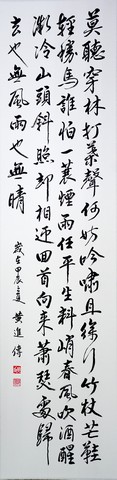 莫聽穿林打葉聲何妨吟嘯且徐行竹杖芒鞋
輕勝馬誰怕一蓑煙雨任平生料峭春風吹酒醒
微冷山頭斜照卻相迎回首向來蕭瑟處歸
去也無風雨也無晴
歲在甲辰之夏 黃進傳